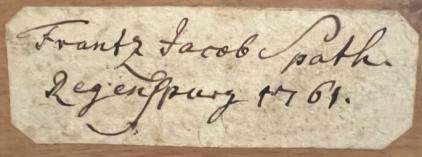 Frantz Jacob Spath.
Regenspurg 1761.